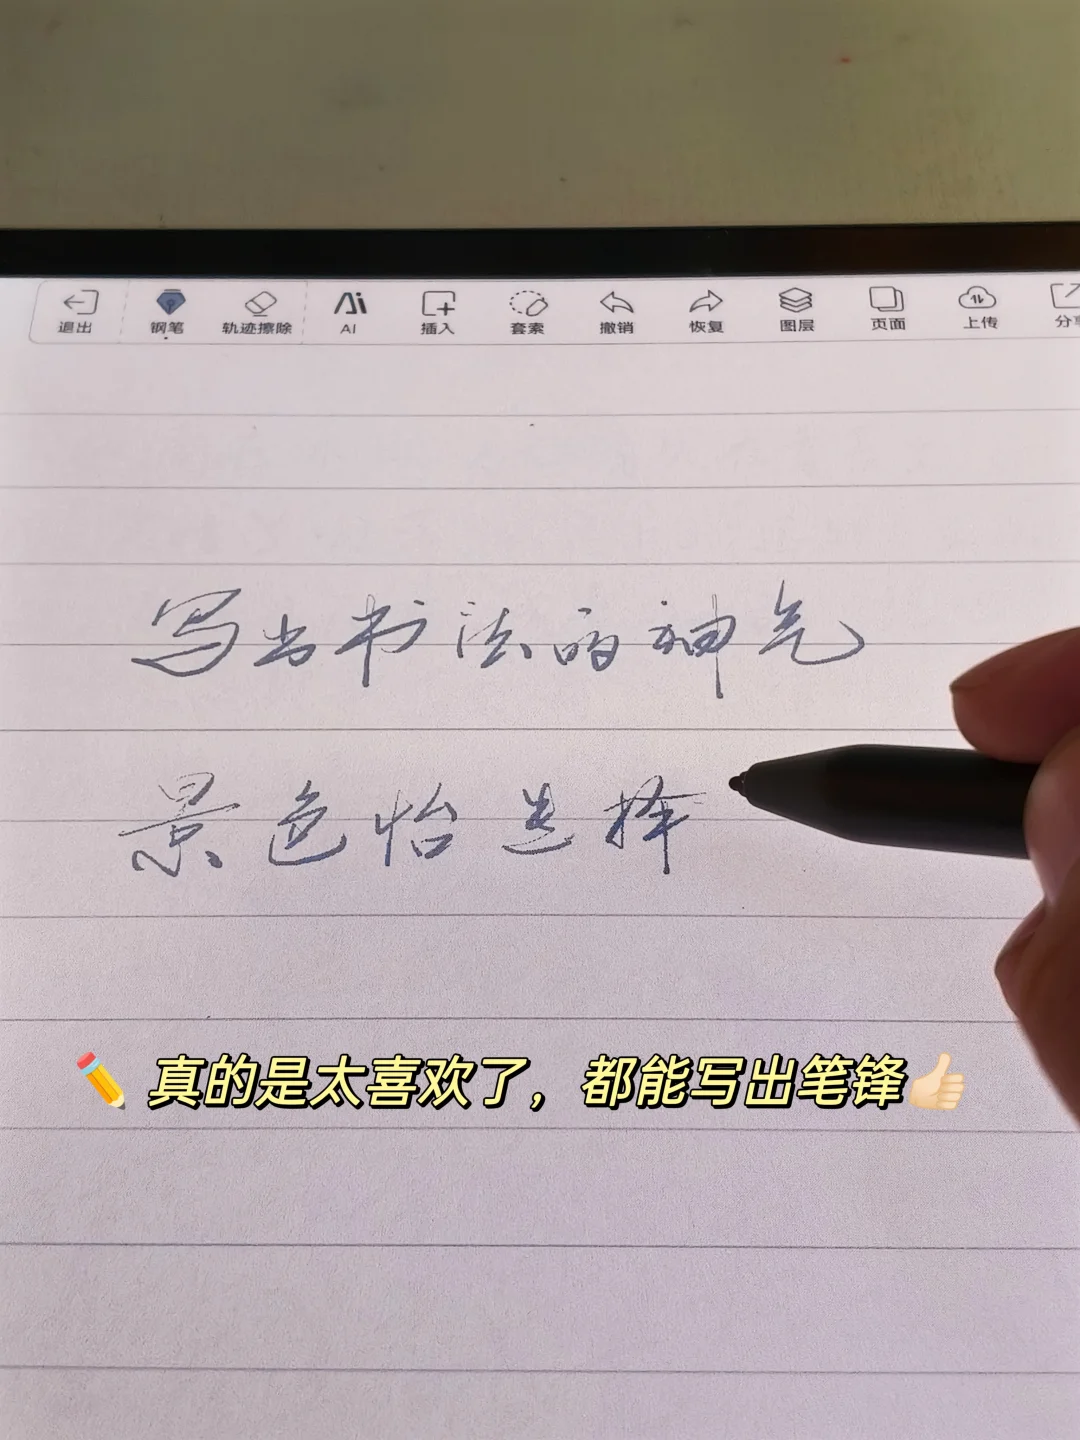 退出 钢笔 轨迹擦除 AI 插入 套索 撤销 恢复 图层 页面 上传 分享
写出书法的神气
景色怡 选择
真的是太喜欢了，都能写出笔锋